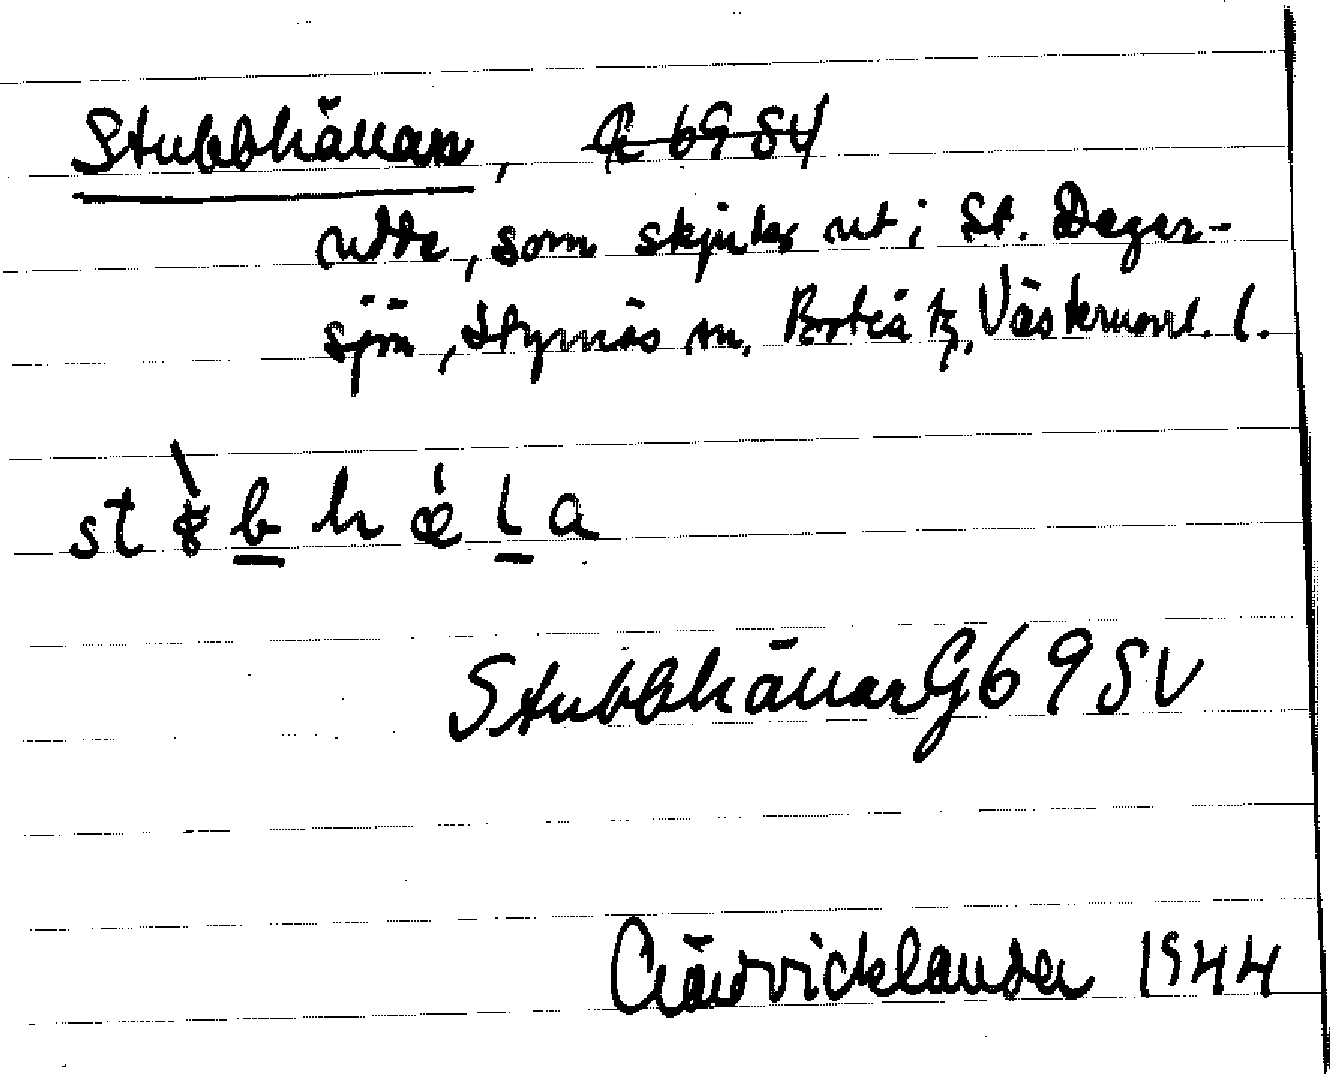 Stubbhällan, G 69 SV
udde, som skjuter ut i St. Deger-
sjön, Styrnäs sn. Boteå tg, Västernorrl. l.
st b h ǽ l a
Stubbhällan G 69 SV
1944